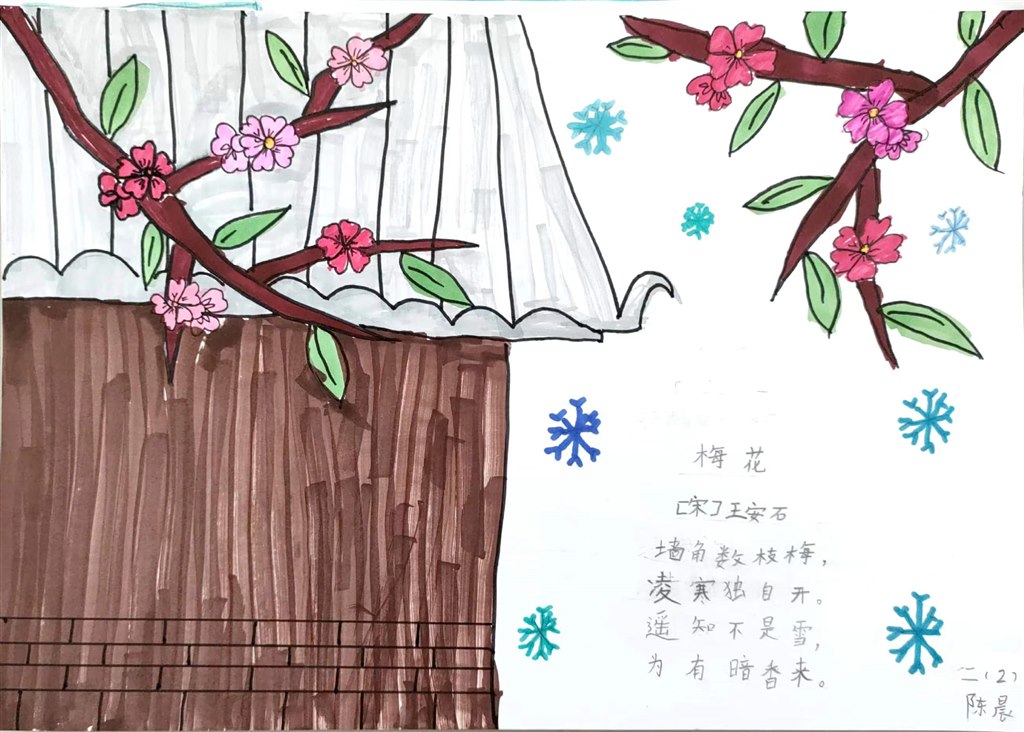 梅花
[宋]王安石
墙角数枝梅，
凌寒独自开。
遥知不是雪，
为有暗香来。
二（2）
陈晨